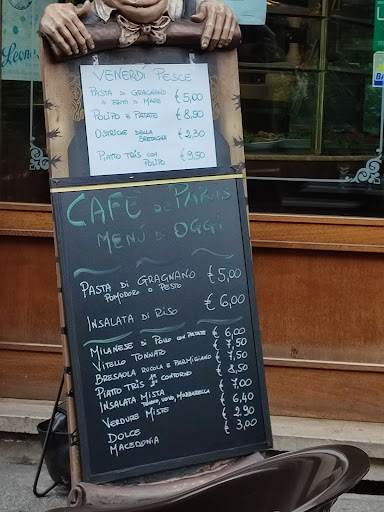 Leon
VENERDÌ PESCE
PASTA DI GRAGNANO € 5,00
O FRITTO DI MARE
POLIPO E PATATE € 8,50
OSTRICHE DELLA € 2,30
BRETAGNA
PIATTO TRIS CON € 9,50
POLIPO
CAFE DE PARIS
MENÙ DI OGGI
PASTA DI GRAGNANO € 5,00
POMODORO O PESTO
INSALATA DI RISO € 6,00
MILANESE DI POLLO CON PATATE € 6,00
VITELLO TONNATO € 7,50
BRESAOLA RUCOLA E PARMIGIANO € 7,50
PIATTO TRIS 1° 2° CONTORNO € 8,50
INSALATA MISTA € 7,00
TONNO, UOVO, MOZZARELLA
VERDURE MISTE € 6,40
DOLCE € 2,90
MACEDONIA € 3,00